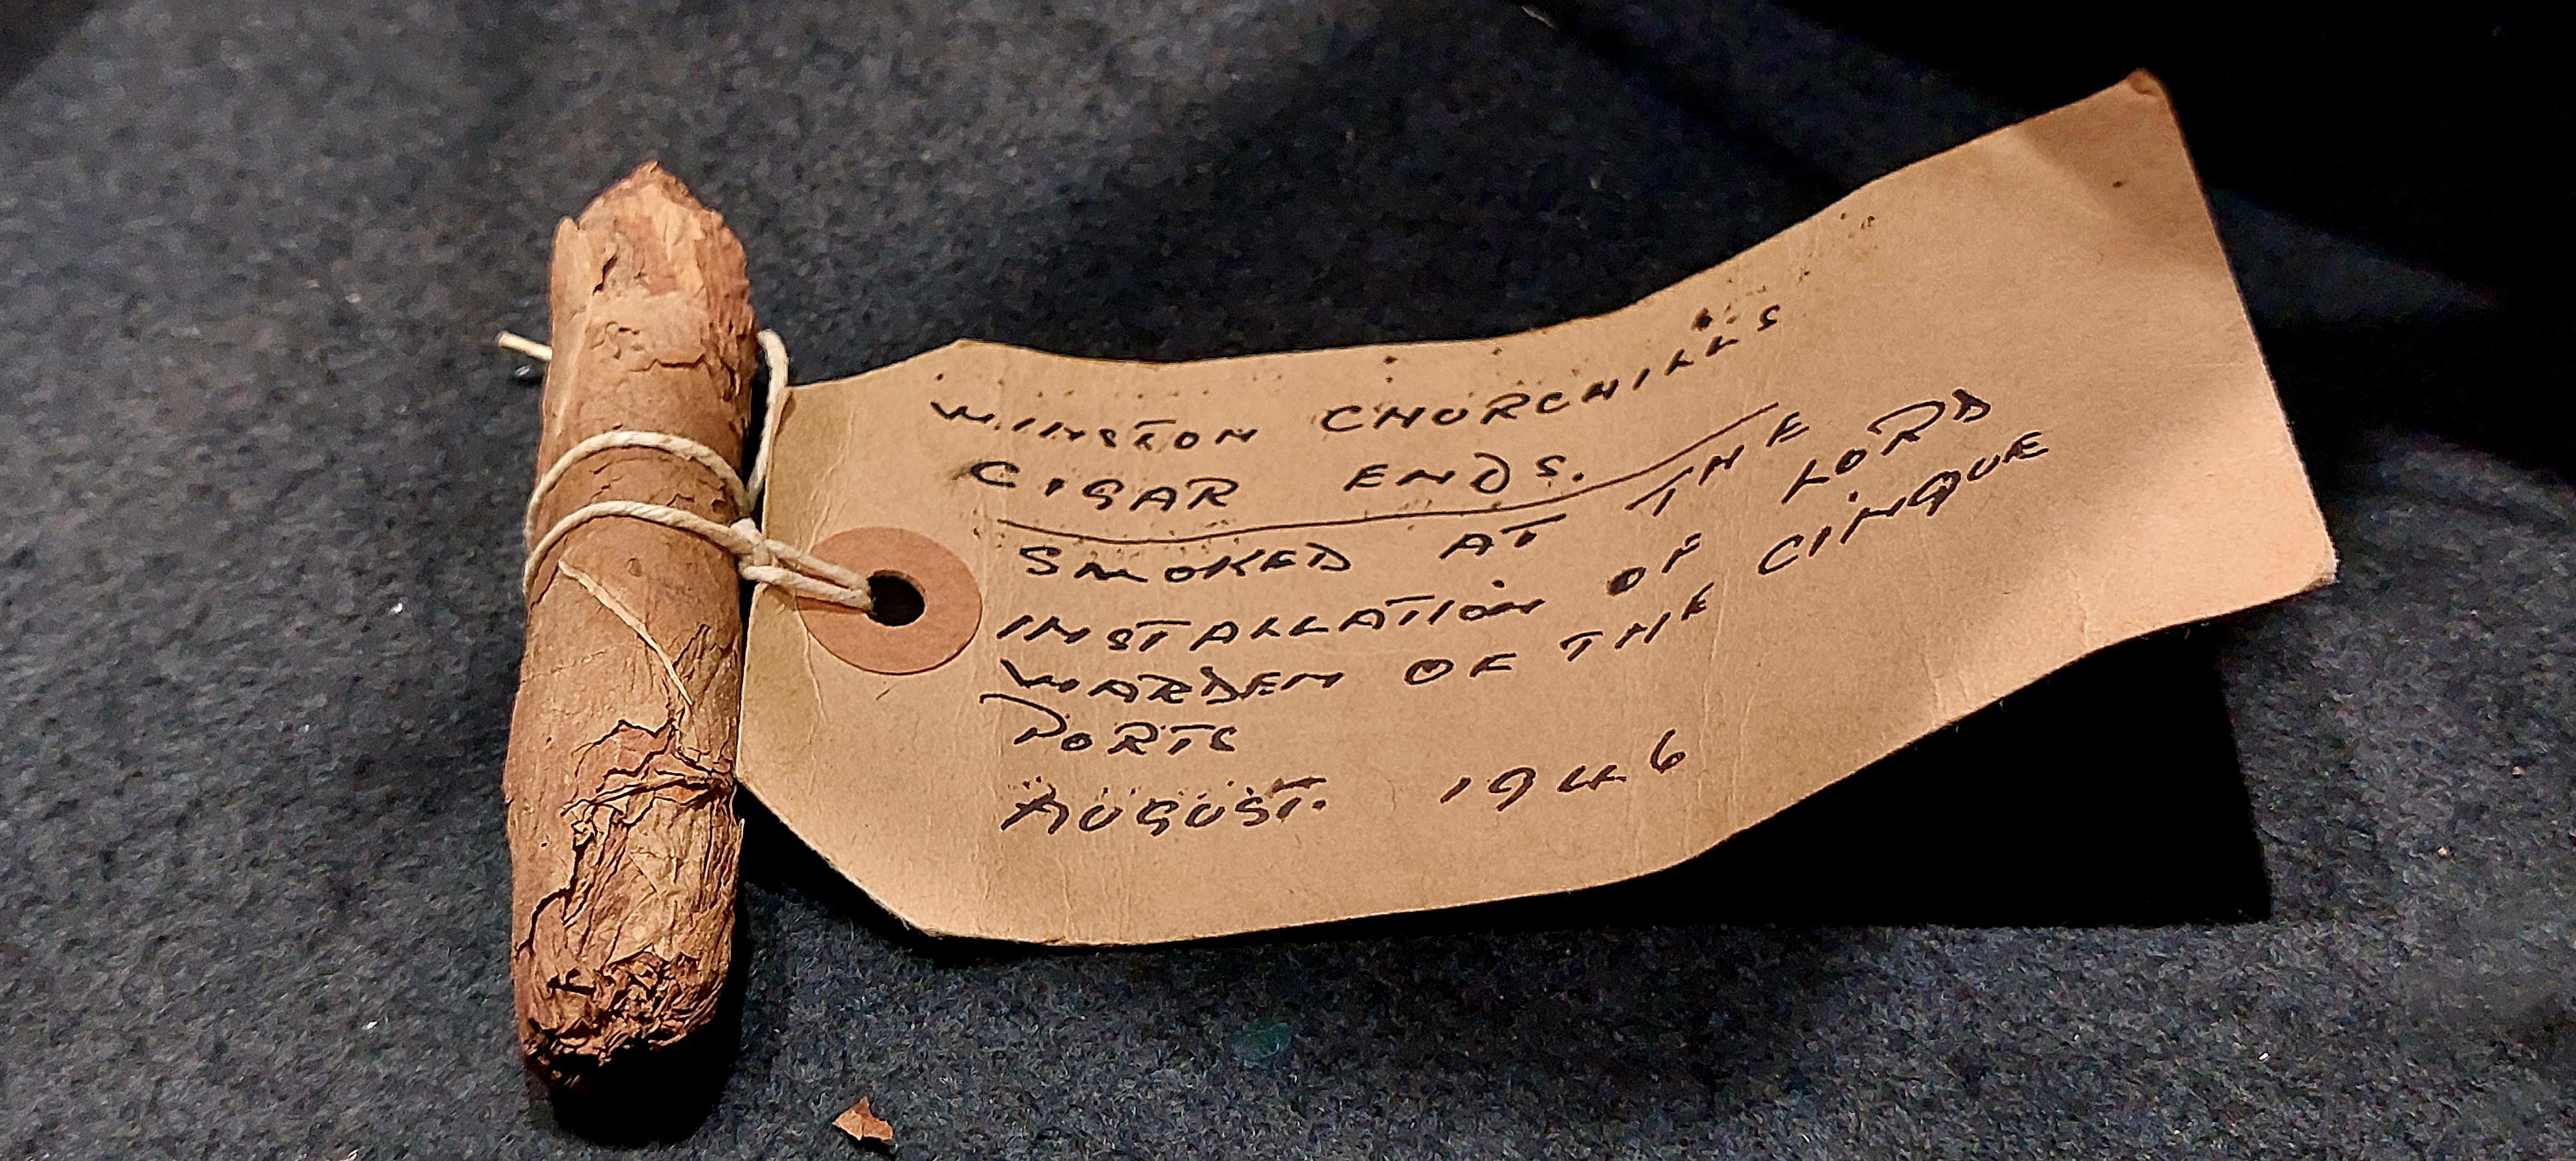 WINSTON CHURCHILLS
CIGAR ENDS.
SMOKED AT THE
INSTALLATION OF LORD
WARDEN OF THE CINQUE
PORTS
AUGUST. 1946